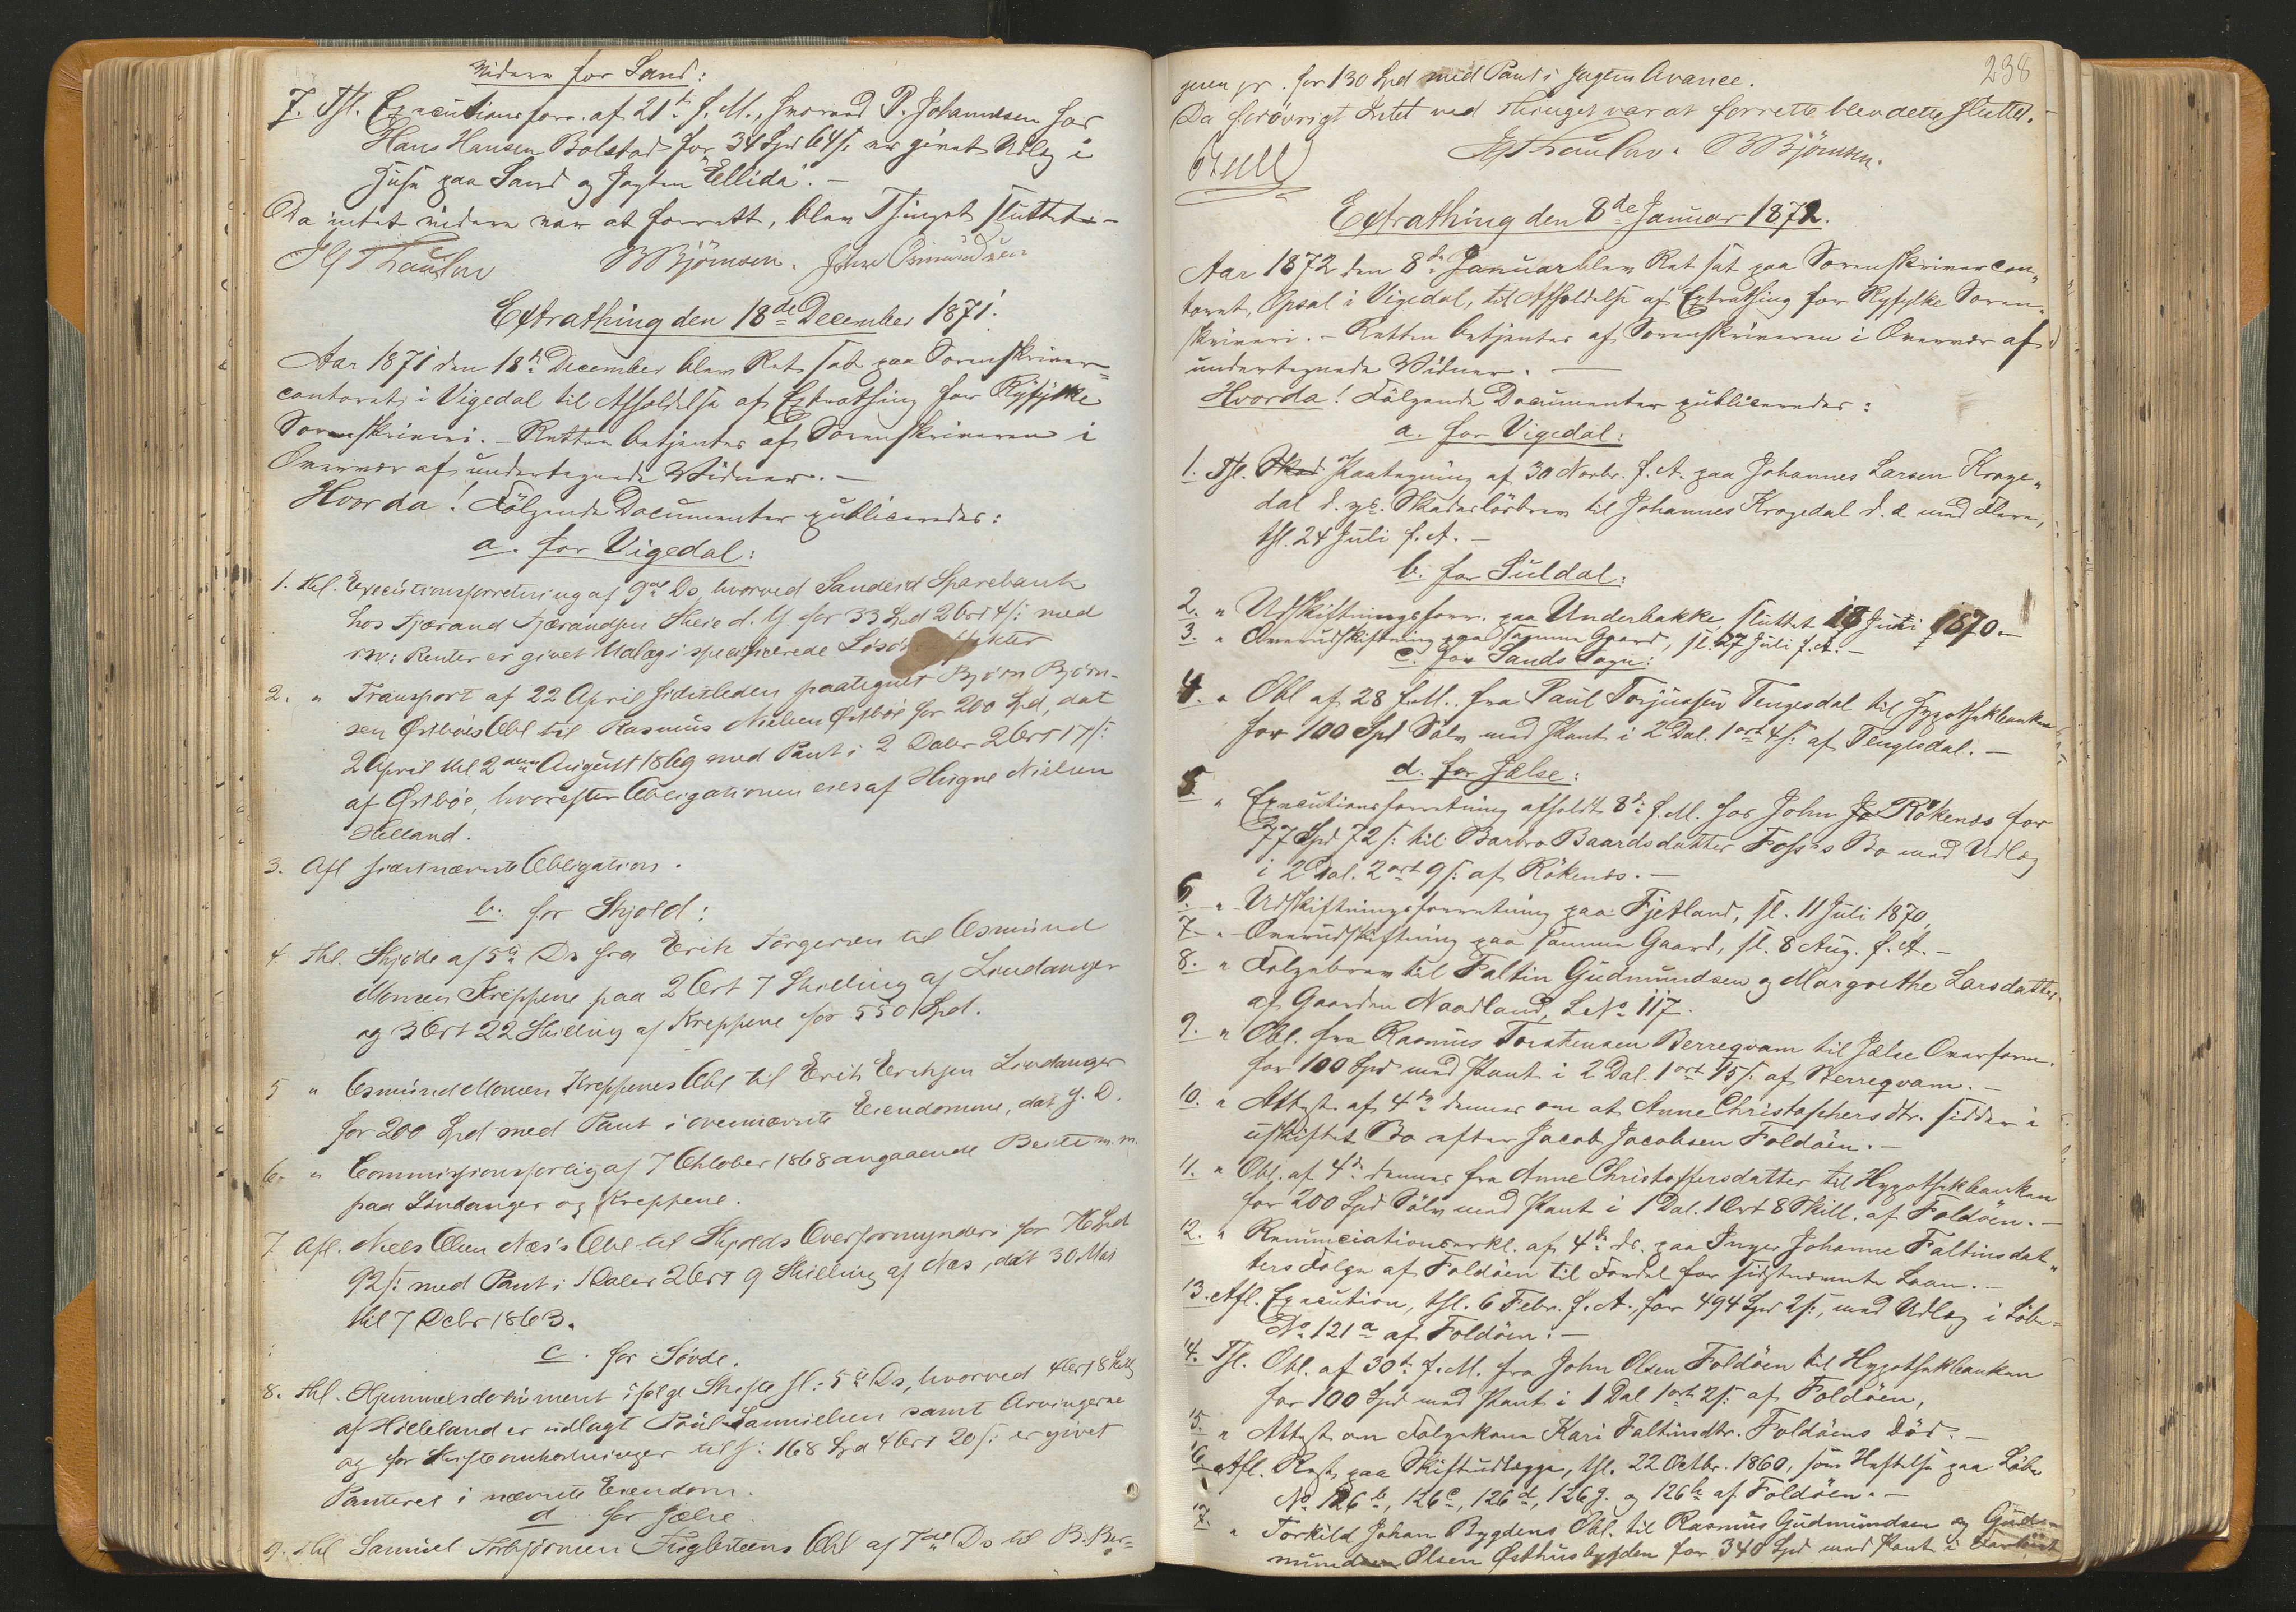 Videre for Sand:
7. Thl. Executionsforr. af 21de f. M., hvorved P. Johannesen hos
Hans Hansen Bolstad for 34 Spd 64 s: er givet Udlæg i
Huse paa Sand og Jagten "Ellida".-
Da intet videre var at forrette, blev Thinget sluttet.-
Thaulow BBjörnsen. John Osmundsen
Extrathing den 18de December 1871.
Aar 1871 den 18de December blev Ret sat paa Sorenskriver=
contoret i Vigedal til Afholdelse af Extrathing for Ryfylke
Sorenskriveri.- Retten betjentes af Sorenskriveren i
Overvær af undertegnede Vidner.-
Hvorda! Fölgende Documenter publiceredes:
a. for Vigedal:
1. thl. Executionsforretning af 9de Ds, hvorved Sandeid Sparebank
hos Tjærand Tjærandsen Skeie d. y. for 33 Spd 2 Ort 4 s: med
Renter er givet Udlæg i specificerede Lösöre
2. " Transport af 22 April sidstleden paategnet Bjørn Bjørn-
sen Østbøes Obl til Rasmus Nielsen Østbøe for 200 Spd, dat
2 April thl 2den August 1869 med Pant i 2 Daler 2 Ort 17 s:
af Østbøe, hvorefter Obligationen eies af Nielsen
Helland.
3. Afl sidstnævnte Obligation.
b. for Skjold:
4 thl. Skjöde af 5te Ds fra Erik Torgersen til Osmund
Monsen Kreppene paa 2 Ort 7 Skilling af Lindanger
og 3 Ort 22 Skilling af Kreppene for 550 Spd.
5 " Osmund Monsen Kreppenes Obl til Erik Eriksen Lindanger
for 200 Spd med Pant i ovennævnte Eiendomme, dat g. D.
6. " Commissionsforlig af 7 Oktober 1868 angaaende Beite m. m.
paa Lindanger og Kreppene.
7 Afl. Niels Olsen Næs's Obl til Skjolds Overformynderi for Spd
92 s: med Pant i 1 Daler 2 Ort 9 Skilling af Næs, dat 30 Mai
thl 7 Decbr 1863.
c. for Sövde.
8. thl. Hjemmelsdokument i fölge Skifte sl: 5te Ds, hvorved 4 Ort 8 Skill
af Hilleland er udlagt Paul Samuelsen samt Arvingerne
og for Skifteomkostninger tils: 168 Spd 4 Ort 20 s: er givet
Panteret i nævnte Eiendom.
d. for Jælse.
9. thl Samuel Thorbjörnsen Fuglesteens Obl af 7de Ds til B. Ber=
238
gesen jr. for 130 Spd med Pant i Jagten Avance.
Da forövrigt Intet ved Thinget var at forrette blev dette sluttet.-
Thaulow. BBjörnsen.
Extrathing den 8de Januar 1872.
Aar 1872 den 8de Januar blev Ret sat paa Sorenskrivercon„
toret, Opsal i Vigedal, til Afholdelse af Extrathing for Ryfylke Soren„
skriveri.- Retten betjentes af Sorenskriveren i Overvær af
undertegnede Vidner.-
Hvorda! Fölgende Documenter publiceredes:
a. for Vigedal:
1. Thl. Paategning af 30 Novbr. f. A. paa Johannes Larsen Kroge„
dal d. yr. Skadeslösbrev til Johannes Krogedal d. æ med Flere,
thl. 24 Juli f. A.-
b. for Suldal:
2. " Udskiftningsforr. paa Underbakke, sluttet 18 Juni 1870.-
3. " Overudskiftning paa samme Gaard, sl. 27 Juli f. A.-
c. for Sands Sogn:
4. " Obl af 28 f. M. fra Paul Torjusen Tengesdal til Hypothekbanken
for 100 Spd Sölv med Pant i 2 Dal. 1 ort 4 s: af Tengesdal.-
d. for Jælse:
5 " Executionsforretning afholdt 8de f. M. hos John Rökenes for
77 Spd 72 s: til Barbro Baardsdatter Foss's Bo med Udlæg
i 2 Dal. 2 ort 9 s: af Rökenes.-
6. " Udskiftningsforretning paa Fjetland, sl. 11 Juli 1870.
7. " Overudskiftning paa samme Gaard, sl. 8 Aug. f. A.-
8. " Folgebrev til Faltin Gudmundsen og Margrethe Larsdatter
af Gaarden Naadland, L No 117.
9. " Obl. fra Rasmus Torstensen Berreqvam til Jælse Overform.
for 100 Spd med Pant i 2 Dal. 1 ort 15 s. af Berreqvam.-
10. " Attest af 4de dennes om at Anne Christophersdtr. sidder i
uskiftet Bo efter Jacob Jacobsen Foldöen.-
11. " Obl. af 4de dennes fra Anne Christoffersdatter til Hypothekbanken
for 200 Spd Sölv med Pant i 1 Dal. 1 Ort 8 Skill. af Foldöen.-
12. " Renunciationserkl. af 4de ds. paa Inger Johanne Faltinsdat„
ters Folge af Foldöen til Fordel for sidstnævnte Laan.-
13. Afl. Execution, thl. 6 Febr. f. A., for 494 Spd 2 s:, med Udlæg i Löbe=
No 121 a af Foldöen.-
14. Thl. Obl. af 30te f. M. fra John Olsen Foldöen til Hypothekbanken
for 100 Spd med Pant i 1 Dal 1 ort 2 s: af Foldöen,
15. " Attest om Folgekone Kari Faltinsdtr. Foldöens Död.-
16. Afl. Rest paa Skifteudlægge, thl. 22 Octbr. 1860, som Heftelse paa Löbe
No 126 b, 126 c, 126 d, 126 g. og 126 h af Foldöen.-
17. " Torkild Johan Bygdens Obl. til Rasmus Gudmundsen og Gud=
mund Olsen Østhusbygden for 340 Spd med Pant i